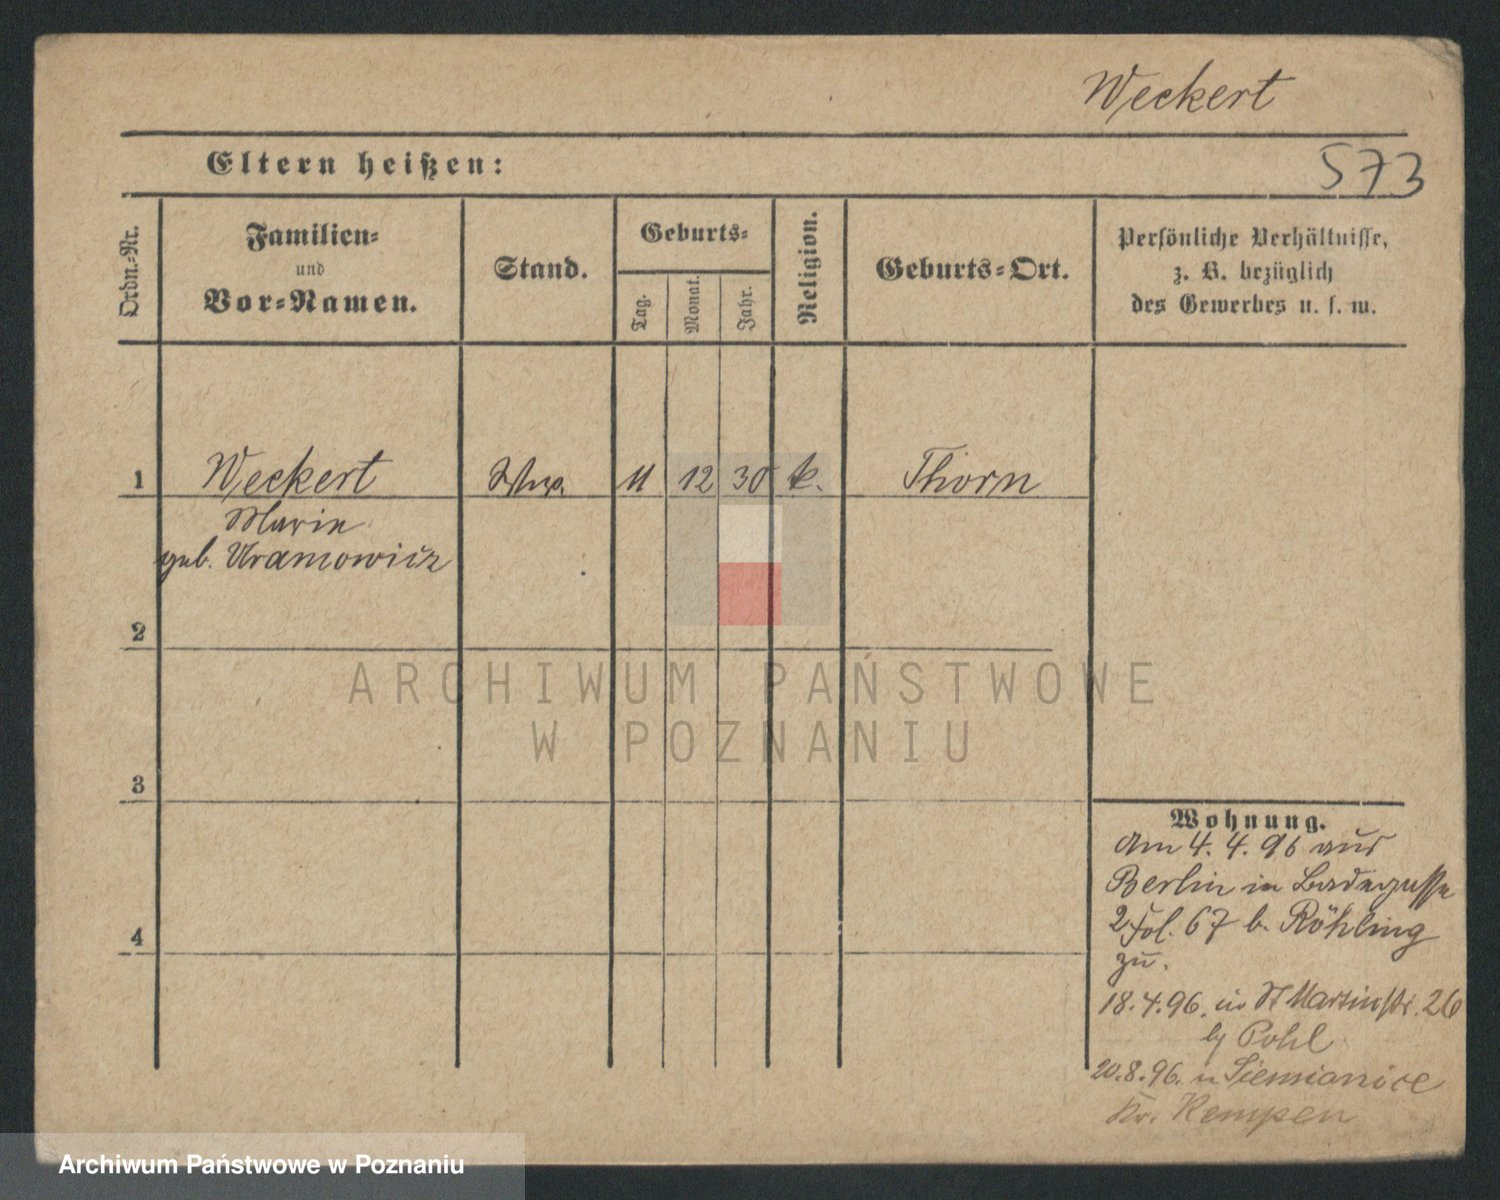 Weckert
Eltern heißen:
573
Ordn.-Nr.
Familien-
und
Vor-Namen.
Stand.
Geburts-
Tag.
Monat.
Jahr.
Religion.
Geburts-Ort.
Persönliche Verhältnisse,
z. B. bezüglich
des Gewerbes u. s. w.
1
Weckert
11 12 30 k.
Thorn
Marie
geb. Uramowicz
2
3
4
ARCHIWUM PAŃSTWOWE
W POZNANIU
Wohnung.
Am 4. 4. 96 aus
Berlin in Badegasse
67 b. Röhling
zu.
18.4.96. in St Martinstr. 26
by Pohl
20.8.96. n Siemianice
Kr. Kempen
Archiwum Państwowe w Poznaniu